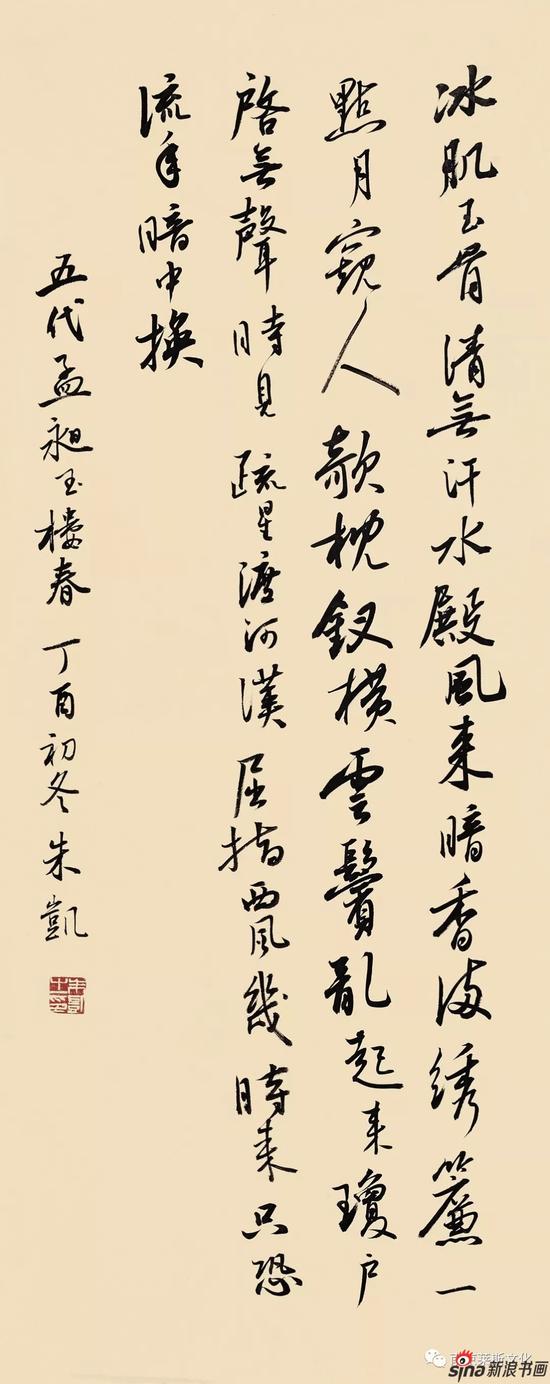 冰肌玉骨清無汗水殿風來暗香滿綉簾一
點月窺人欹枕釵橫雲鬢亂起來瓊户
啓無聲時見疏星渡河漢屈指西風幾時來只恐
流年暗中換
五代孟昶玉樓春丁酉初冬朱凱
sina新浪书画